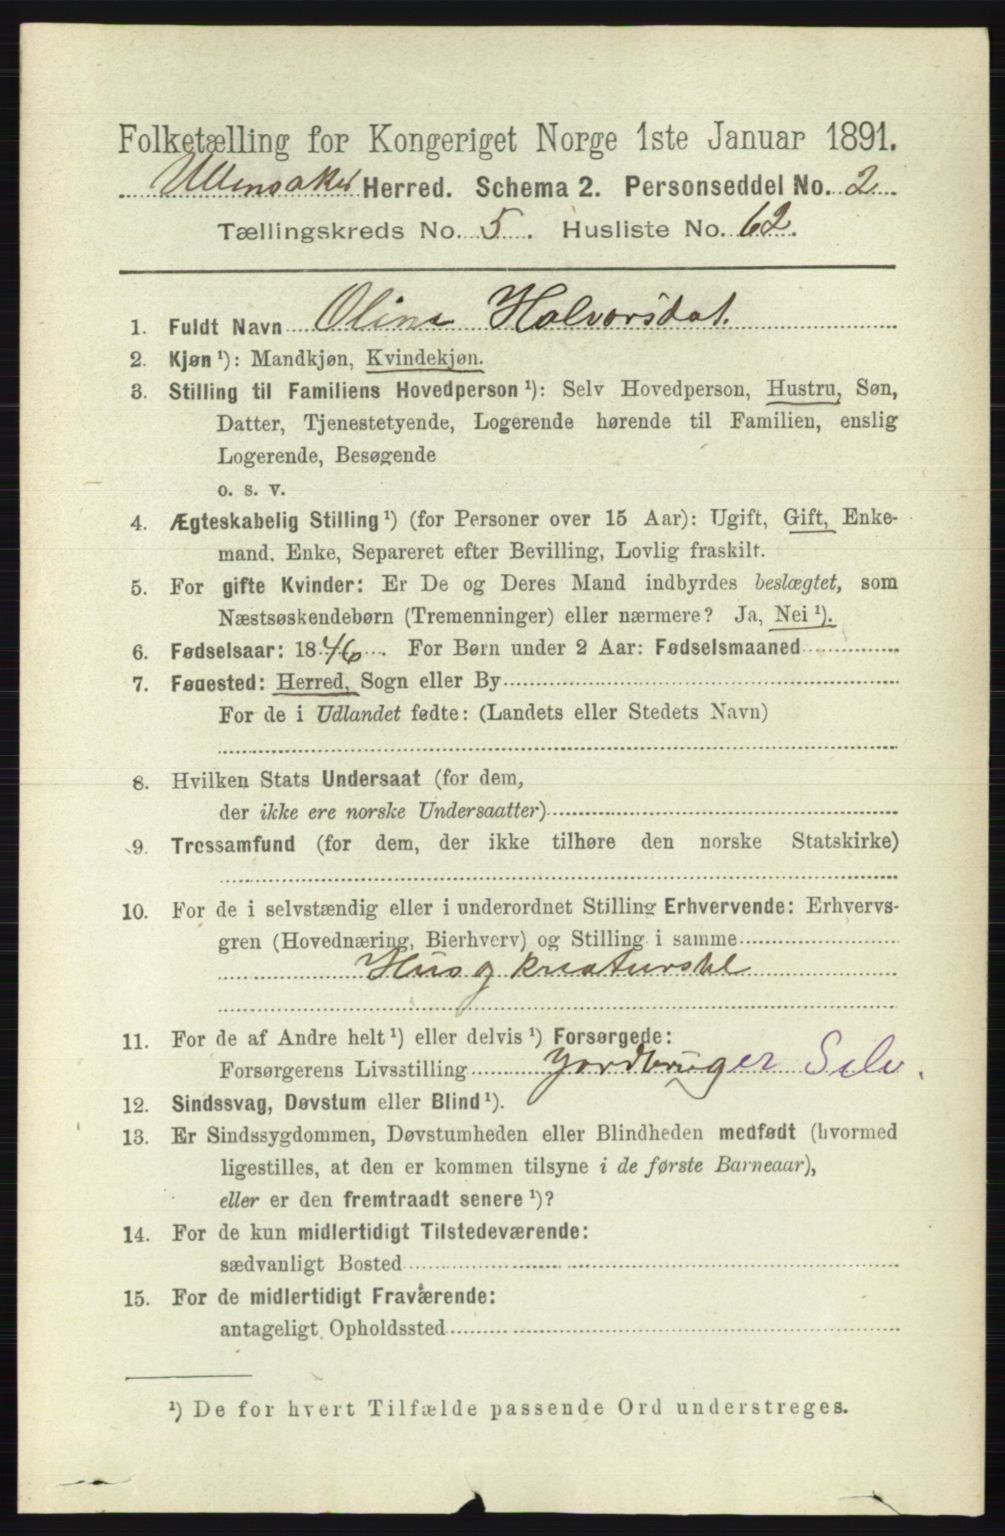 Folketælling for Kongeriget Norge 1ste Januar 1891.
Ullensaker Herred. Schema 2. Personseddel No. 2
Tællingskreds No. 5. Husliste No. 62.
1. Fuldt Navn Olina Halvorsdat.
2. Kjøn ¹): Mandkjøn, Kvindekjøn.
3. Stilling til Familiens Hovedperson ¹): Selv Hovedperson, Hustru, Søn,
Datter, Tjenestetyende, Logerende hørende til Familien, enslig
Logerende, Besøgende
o. s. v.
4. Ægteskabelig Stilling ¹) (for Personer over 15 Aar): Ugift, Gift, Enke-
mand, Enke, Separeret efter Bevilling, Lovlig fraskilt.
5. For gifte Kvinder: Er De og Deres Mand indbyrdes beslægtet, som
Næstsøskendebørn (Tremenninger) eller nærmere? Ja, Nei ¹).
6. Fødselsaar: 1846. For Børn under 2 Aar: Fødselsmaaned
7. Føuested: Herred, Sogn eller By
For de i Udlandet fødte: (Landets eller Stedets Navn)
8. Hvilken Stats Undersaat (for dem,
der ikke ere norske Undersaatter)
9. Trossamfund (for dem, der ikke tilhøre den norske Statskirke)
10. For de i selvstændig eller i underordnet Stilling Erhvervende: Erhvervs-
gren (Hovednæring, Bierhverv) og Stilling i samme
Hus og kreaturstel
11. For de af Andre helt ¹) eller delvis ¹) Forsørgede:
Forsørgerens Livsstilling Jordbruger Selv.
12. Sindssvag, Døvstum eller Blind ¹).
13. Er Sindssygdommen, Døvstumheden eller Blindheden medfødt (hvormed
ligestilles, at den er kommen tilsyne i de første Barneaar),
eller er den fremtraadt senere ¹)?
14. For de kun midlertidigt Tilstedeværende:
sædvanligt Bosted
15. For de midlertidigt Fraværende:
antageligt Opholdssted
¹) De for hvert Tilfælde passende Ord understreges.